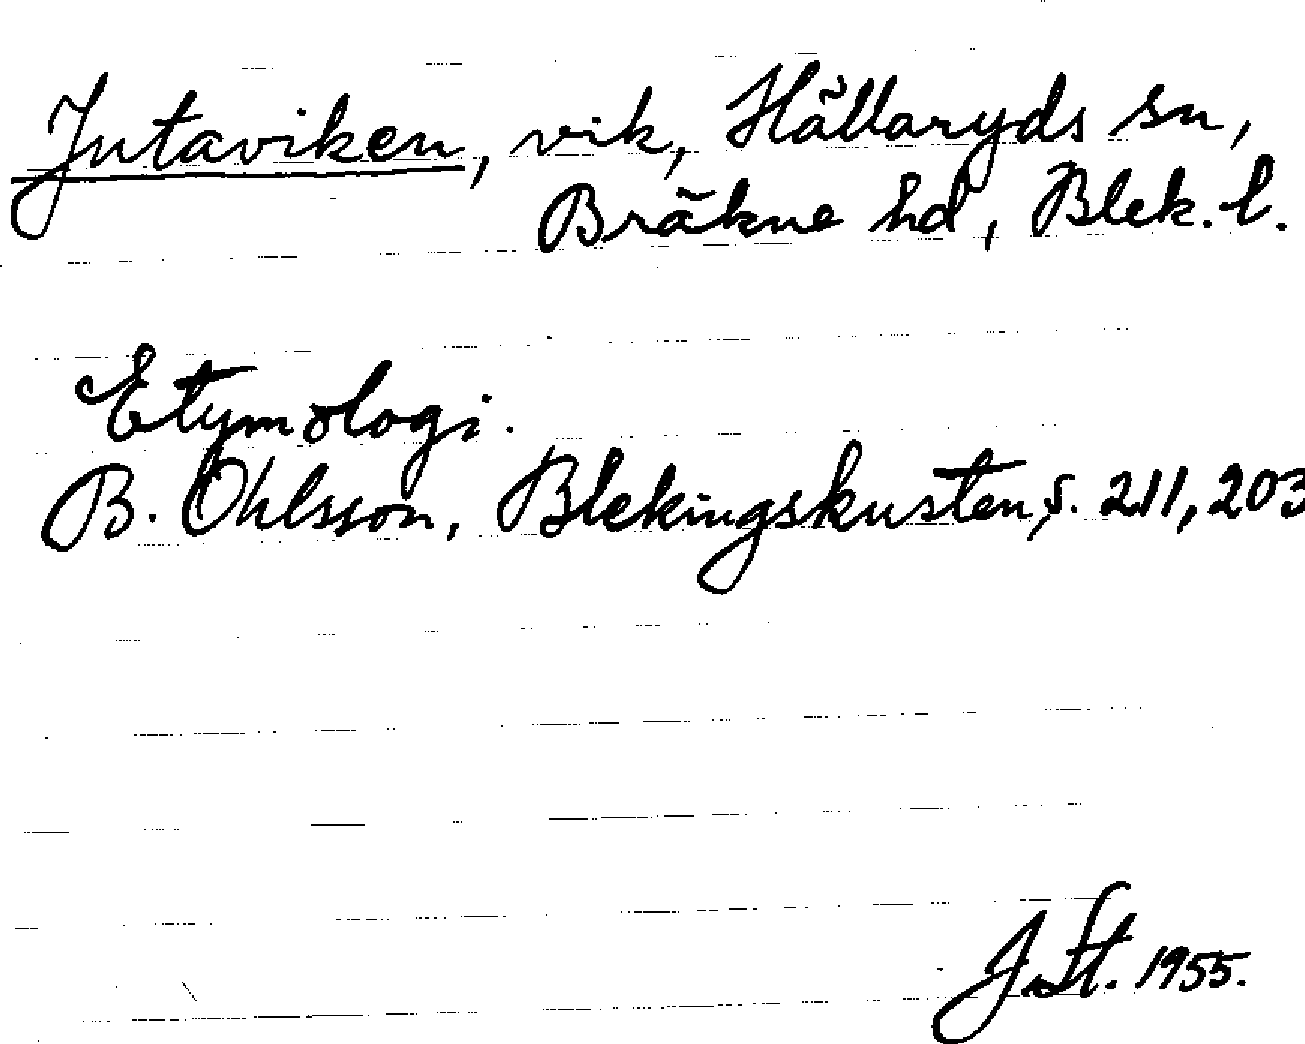 Jutaviken, vik, Hällaryds sn,
Bräkne hd, Blek. l.
Etymologi.
B. Ohlsson, Blekingskusten, s. 211, 203
J. St. 1955.